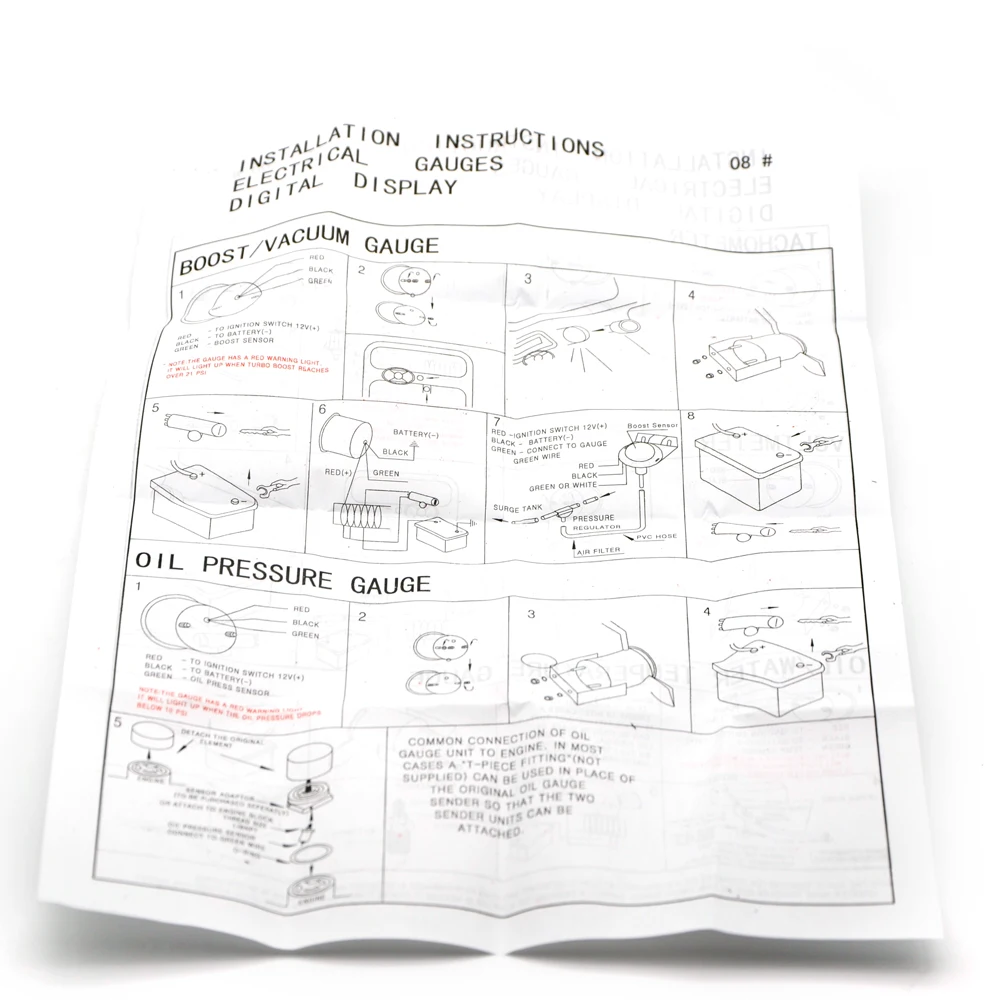 INSTALLATION INSTRUCTIONS
ELECTRICAL GAUGES
DIGITAL DISPLAY
08 #
BOOST/VACUUM GAUGE
1
RED
BLACK
GREEN
RED - TO IGNITION SWITCH 12V(+)
BLACK - TO BATTERY(-)
GREEN - BOOST SENSOR
* NOTE:THE GAUGE HAS A RED WARNING LIGHT.
IT WILL LIGHT UP WHEN TURBO BOOST REACHES
OVER 21 PSI
2
3
4
5
6
BATTERY(-)
BLACK
RED(+)
GREEN
7
RED -IGNITION SWITCH 12V(+)
BLACK - BATTERY(-)
GREEN - CONNECT TO GAUGE
GREEN WIRE
Boost Sensor
RED
BLACK
GREEN OR WHITE
SURGE TANK
PRESSURE
REGULATOR
PVC HOSE
AIR FILTER
8
OIL PRESSURE GAUGE
1
RED
BLACK
GREEN
RED - TO IGNITION SWITCH 12V(+)
BLACK - TO BATTERY(-)
GREEN - OIL PRESS SENSOR
NOTE:THE GAUGE HAS A RED WARNING LIGHT
IT WILL LIGHT UP WHEN THE OIL PRESSURE DROPS
BELOW 10 PSI
2
3
4
5
DETACH THE ORIGINAL
ELEMENT
ENGINE
SENSOR ADAPTOR
(TO BE PURCHASED SEPERATELY)
OR ATTACH TO ENGINE BLOCK
THREAD SIZE
OIL PRESSURE SENSOR
CONNECT TO GREEN WIRE
O-RING
ENGINE
COMMON CONNECTION OF OIL
GAUGE UNIT TO ENGINE. IN MOST
CASES A "T-PIECE FITTING"(NOT
SUPPLIED) CAN BE USED IN PLACE OF
THE ORIGINAL OIL GAUGE
SENDER SO THAT THE TWO
SENDER UNITS CAN BE
ATTACHED.